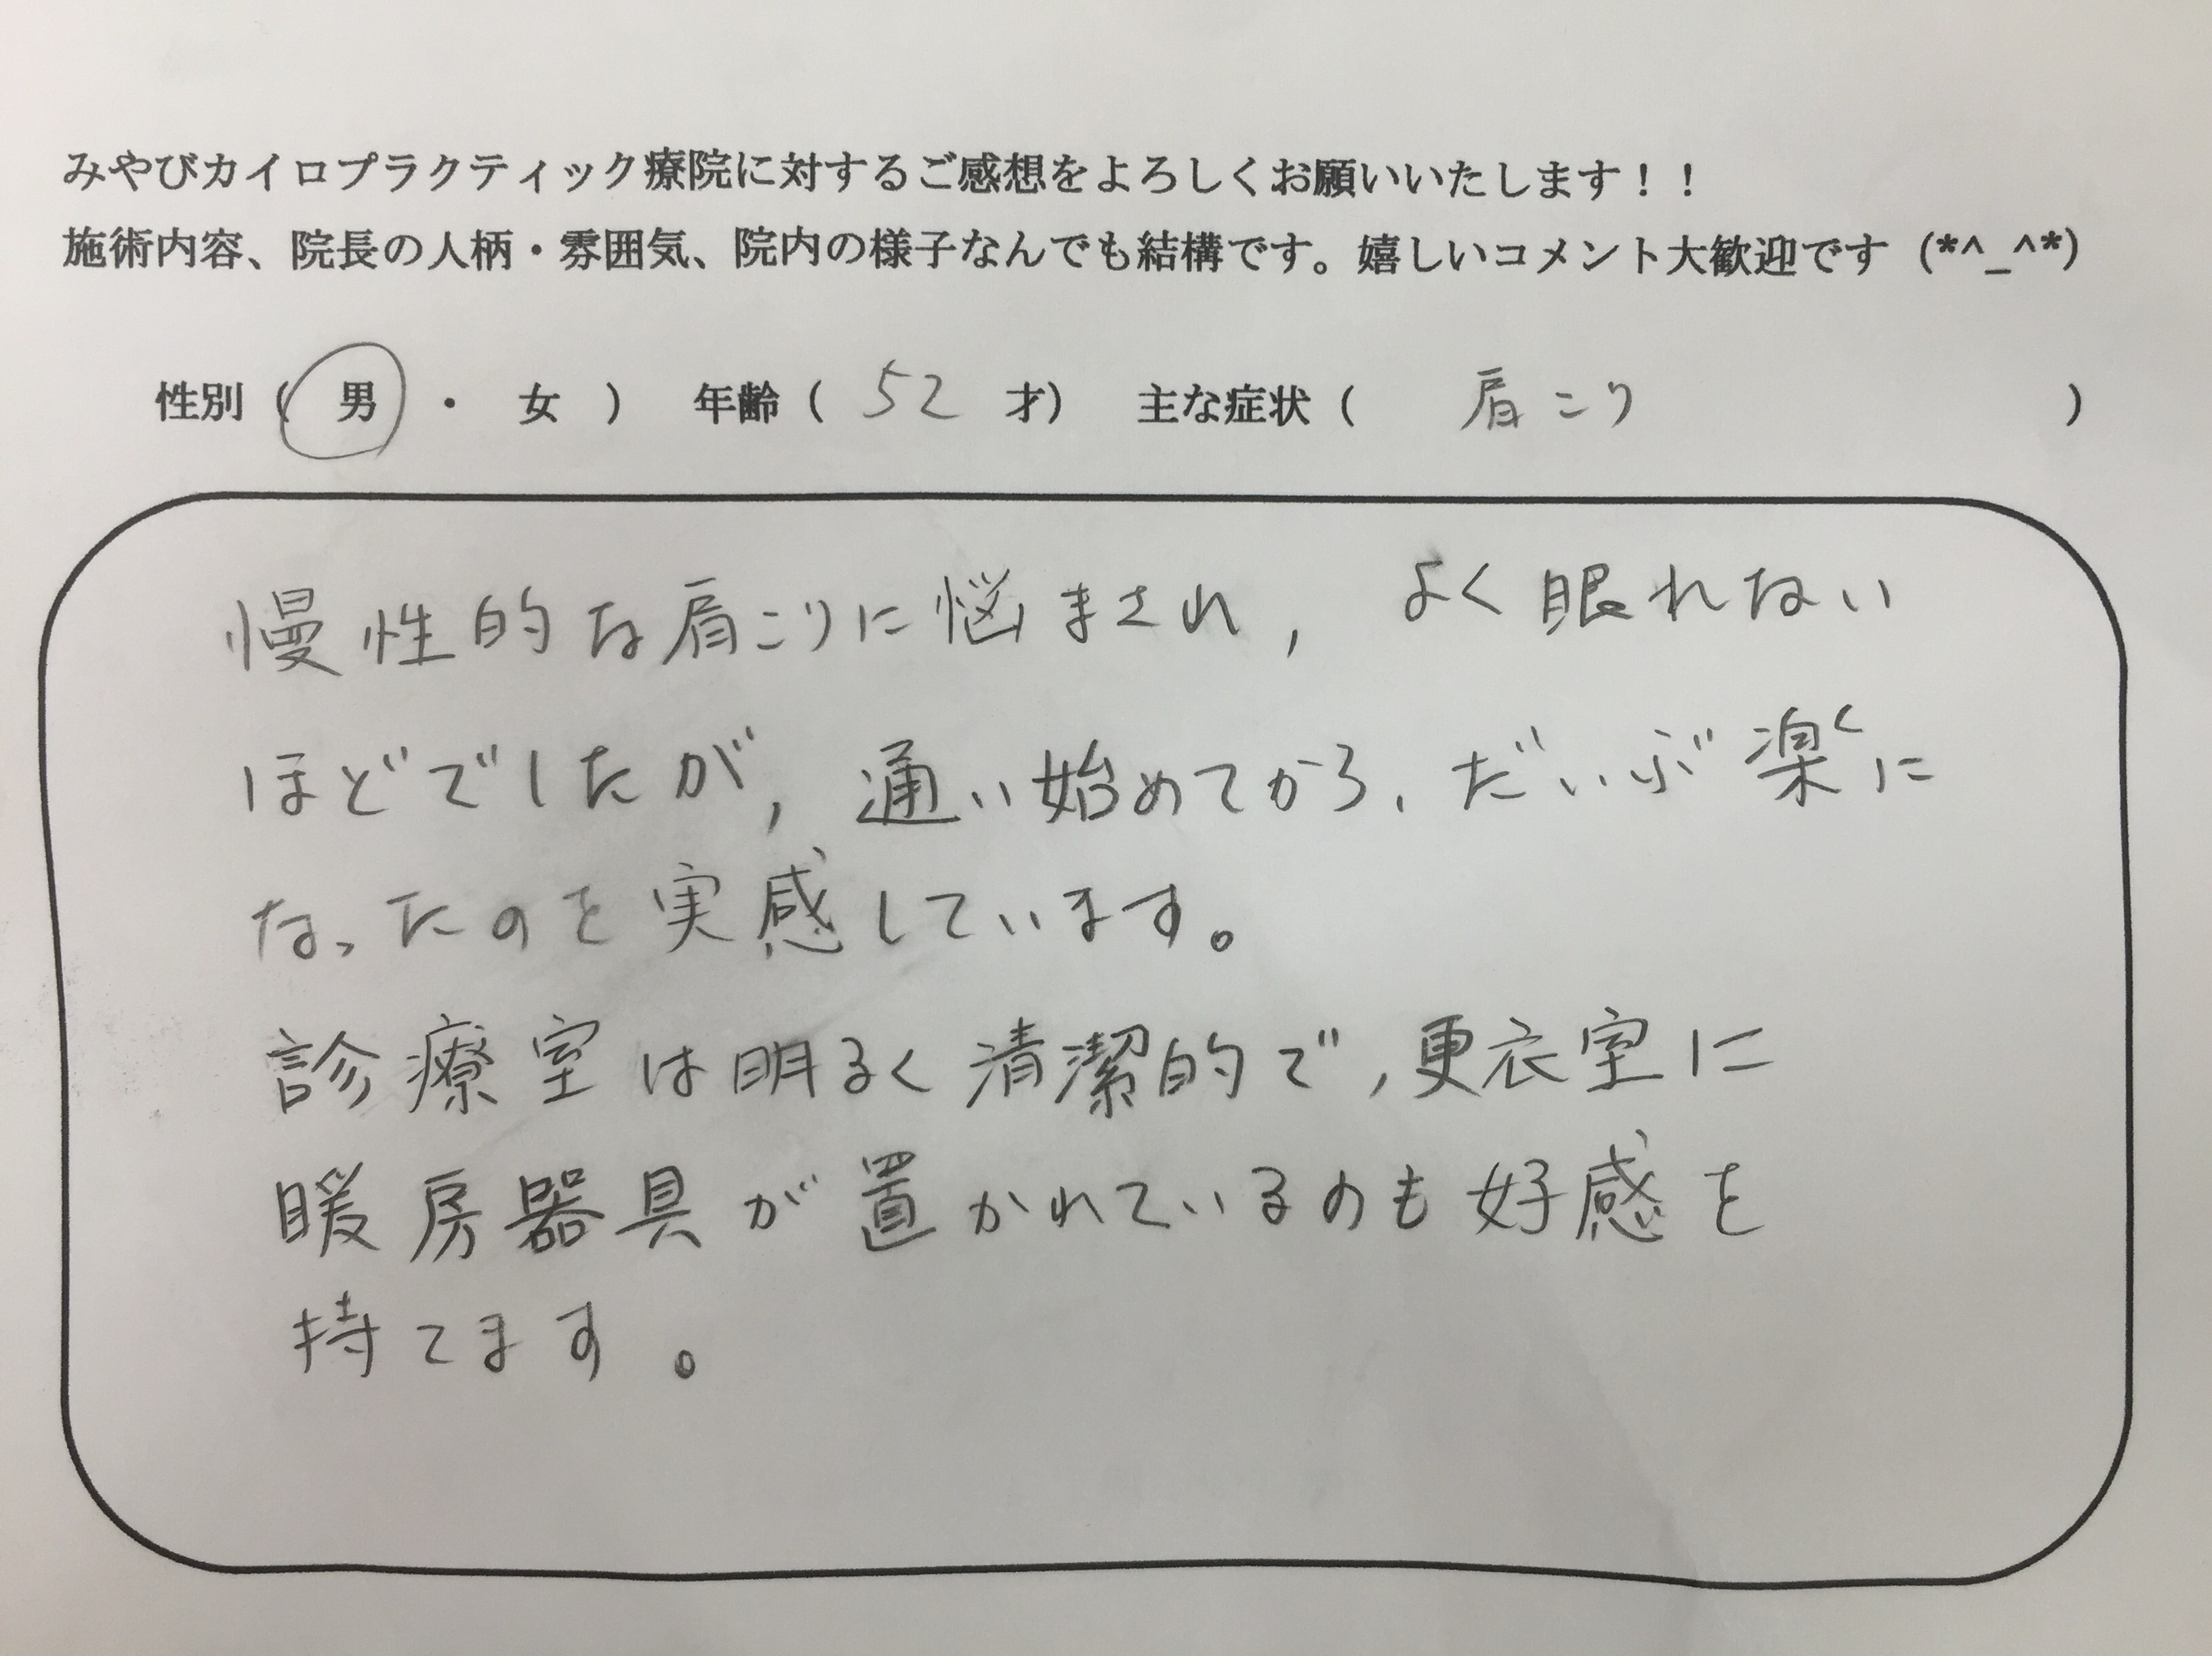 みやびカイロプラクティック療院に対するご感想をよろしくお願いいたします！！
施術内容、院長の人柄・雰囲気、院内の様子なんでも結構です。嬉しいコメント大歓迎です（*^_^*）
性別（ 男 ・ 女 ） 年齢（ 52 才） 主な症状（ 肩こり ）
慢性的な肩こりに悩まされ, よく眠れない
ほどでしたが, 通い始めてから、だいぶ楽に
なったのを実感しています。
診療室は明るく清潔的で, 更衣室に
暖房器具が置かれているのも好感を
持てます。